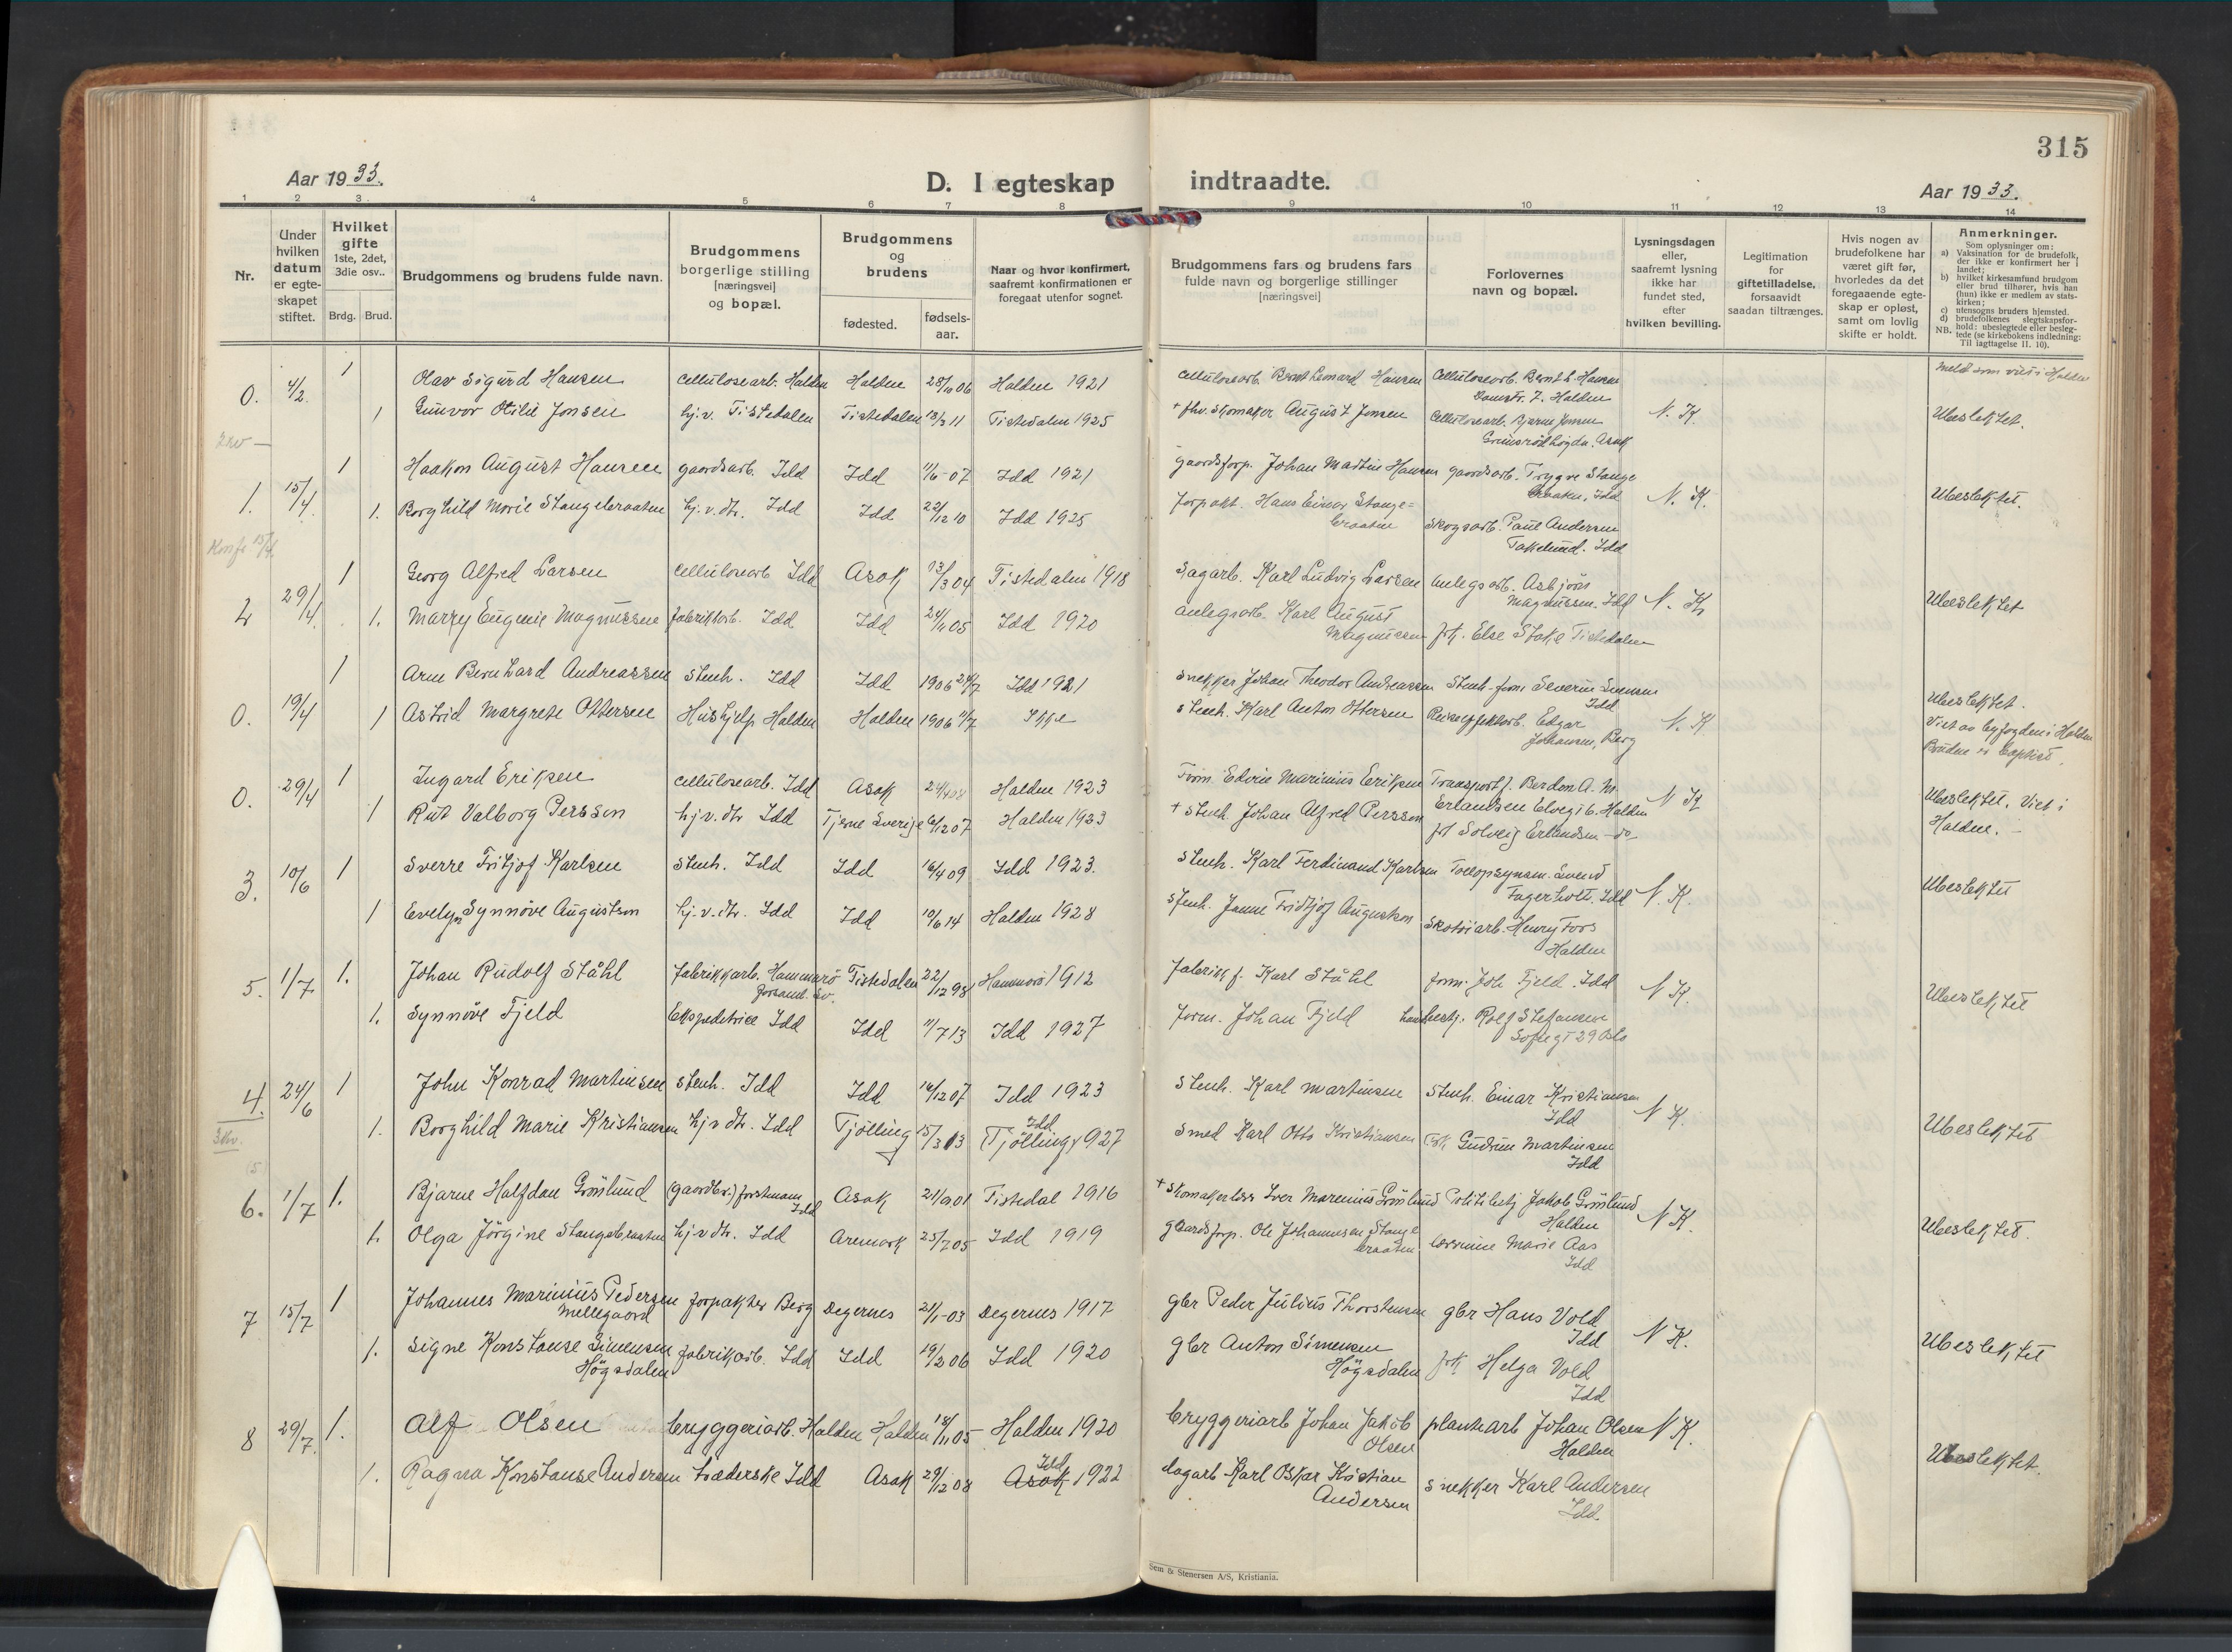 315
Aar 1933.
D. I egteskap indtraadte.
Aar 1933.
1 2 3 4 5 6 7 8 9 10 11 12 13 14
Nr.
Under
hvilken
datum
er egte-
skapet
stiftet.
Hvilket
gifte
1ste, 2det,
3die osv..
Brdg. Brud.
Brudgommens og brudens fulde navn.
Brudgommens
borgerlige stilling
[næringsvei]
og bopæl.
Brudgommens
og
brudens
fødested.
fødsels-
aar.
Naar og hvor konfirmert,
saafremt konfirmationen er
foregaat utenfor sognet.
Brudgommens fars og brudens fars
fulde navn og borgerlige stillinger
[næringsvei]
Forlovernes
navn og bopæl.
Lysningsdagen
eller,
saafremt lysning
ikke har
fundet sted,
efter
hvilken bevilling.
Legitimation
for
giftetilladelse,
forsaavidt
saadan tiltrænges.
Hvis nogen av
brudefolkene har
været gift før,
hvorledes da det
foregaaende egte-
skap er opløst,
samt om lovlig
skifte er holdt.
Anmerkninger.
Som oplysninger om:
a) Vaksination for de brudefolk,
der ikke er konfirmert her i
landet;
b) hvilket kirkesamfund brudgom
eller brud tilhører, hvis han
(hun) ikke er medlem av stats-
kirken;
c) utensogns bruders hjemsted.
d) brudefolkenes slegtskapsfor-
hold: ubeslegtede eller besleg-
tede (se kirkebokens indledning:
NB. Til iagttagelse II. 10).
0. 4/2. 1 Olav Sigurd Hansen Cellulosearb. Halden Halden 28/10 06 Halden 1921 Cellulosearb. Bernt Leonard Hansen Cellulosearb. Bernt L. Hansen
Damstr. 7. Halden
Meldt som viet i Halden
1 Gunvor Otilie Jonsen hj.v. Tistedalen Tistedalen 13/3 11 Tistedalen 1925 + fhv. Skomaker August Jonsen Cellulosearb. Bjarne Jonsen
Grimsrödhögda. Asak
N. K. Ubeslektet.
1. 15/4. 1 Haakon August Hansen gaardsarb. Idd Idd 11/6-07 Idd 1921 gaardsforp. Johan Martin Hansen gaardsarb. Trygve Stange
braaten, Idd N. K. Ubeslektet.
1. Borghild Marie Stangebraaten hj.v.dtr. Idd Idd 22/12 10 Idd 1925 forpakt. Hans Einar Stange=
braaten Skogsarb. Paul Andersen
Takelund. Idd
2 29/4. 1 Georg Alfred Larsen Cellulosearb Idd Asak 13/3 04 Tistedalen 1918 Sagarb. Karl Ludvig Larsen anlegsarb. Asbjörn
Magnussen. Idd N. K. Ubeslektet
1. Marry Eugenie Magnussen fabrikkarb. Idd Idd 24/11 05 Idd 1920 anlegsarb. Karl August
Magnussen frk. Else Stake Tistedalen
0. 19/4 1 Arne Bernhard Andreassen Stenh. Idd Idd 1906 24/7 Idd 1921 Snekker Johan Theodor Andreassen Stenh. form Severin Svensen
Idd Ubeslektet.
1 Astrid Margrete Ottersen Hushjelp Halden Halden 1906 11/7 Ikke Stenh. Karl Anton Ottersen Edgar
Johansen, Berg N. K Viet av byfogden i Halden
Bruden er baptist.
0. 29/4 1 Ingard Eriksen Cellulosearb. Idd Asak 24/4 08 Halden 1923 Form. Edvin Marinius Eriksen Transportf. Berdon A. M.
Erlandsen Elvegt 6. Halden N K Ubeslektet. Viet i
Halden.
1 Rut Valborg Persson hj.v.dtr Idd Tjerne Sverige 6/12 07 Halden 1923 + Stenh. Johan Alfred Persson frk Solveig Erlandsen -do-
3. 10/6 1 Sverre Fritjof Karlsen Stenh. Idd Idd 16/4 09 Idd 1923. Stenh. Karl Ferdinand Karlsen Tollopsynsm. Svend
Fagerholt. Idd N. K. Ubeslektet
1 Evelyn Synnöve Augustson hj.v.dtr. Idd Idd 10/6 14 Halden 1928 Stenh. Janne Fridtjof Augustson Skotöiarb. Henry Foss
Halden
5. 1/7 1. Johan Rudolf Ståhl fabrikkarb. Hammarö
forsaml. Sv. Tistedalen 22/12 98 Hammarö 1912 fabrikkf. Karl Ståhl form. Joh Fjeld. Idd N K. Ubeslektet
1. Synnöve Fjeld Ekspeditrice Idd Idd 11/7 13 Idd 1927 form. Johan Fjeld handbestj. Rolf Stefansen
Sofiegt 29 Oslo
4. 24/6 1 John Konrad Martinsen Stenh. Idd Idd 14/12 07 Idd 1923 Stenh. Karl Martinsen Stenh. Einar Kristiansen
Idd N K. Ubeslektet
1. Borghild Marie Kristiansen hj v dtr. Idd Tjölling 15/3 13 Idd (Tjölling) 1927 Smed Karl Otto Kristiansen Frk Gudrun Martinsen
Idd
6. 1/7 1. Bjarne Halfdan Grönlund (gaardbr.) forstmann
Idd Asak 21/9 01 Tistedal 1916 + Skomakerlær. Iver Marenius Grönlund Politibetj Jakob Grönlund
Halden N K. Ubeslektet.
1. Olga Jörgine Stangebraaten hj v dtr. Idd Aremark 25/7 05 Idd 1919 gaardsforp. Ole Johannesen Stange
braaten lærerinne Marie Aas
Idd
7 15/7 1 Johannes Marinius Pedersen
Mellegaard forpakter Berg Degernes 21/1-03 Degernes 1917 gbr Peder Julius Thorstensen gbr Hans Vold
Idd N K. Ubeslektet
1. Signe Konstanse Simensen
Högsdalen fabrikarb. Idd Idd 19/2 06 Idd 1920 gbr Anton Simensen
Högsdalen frk Helga Vold
Idd
8 29/7. 1. Alf Olsen bryggeriarb. Halden Halden 18/11 05 Halden 1920 bryggeriarb Johan Jakob
Olsen plankearb Johan Olsen
Halden N K. Ubeslektet.
1. Ragna Konstanse Andersen træderske Idd Asak 29/12 08 Idd Asak 1922 dagarb Karl Oskar Kristian
Andersen Snekker Karl Andersen
Idd
Sem & Stenersen A/S, Kristiania.